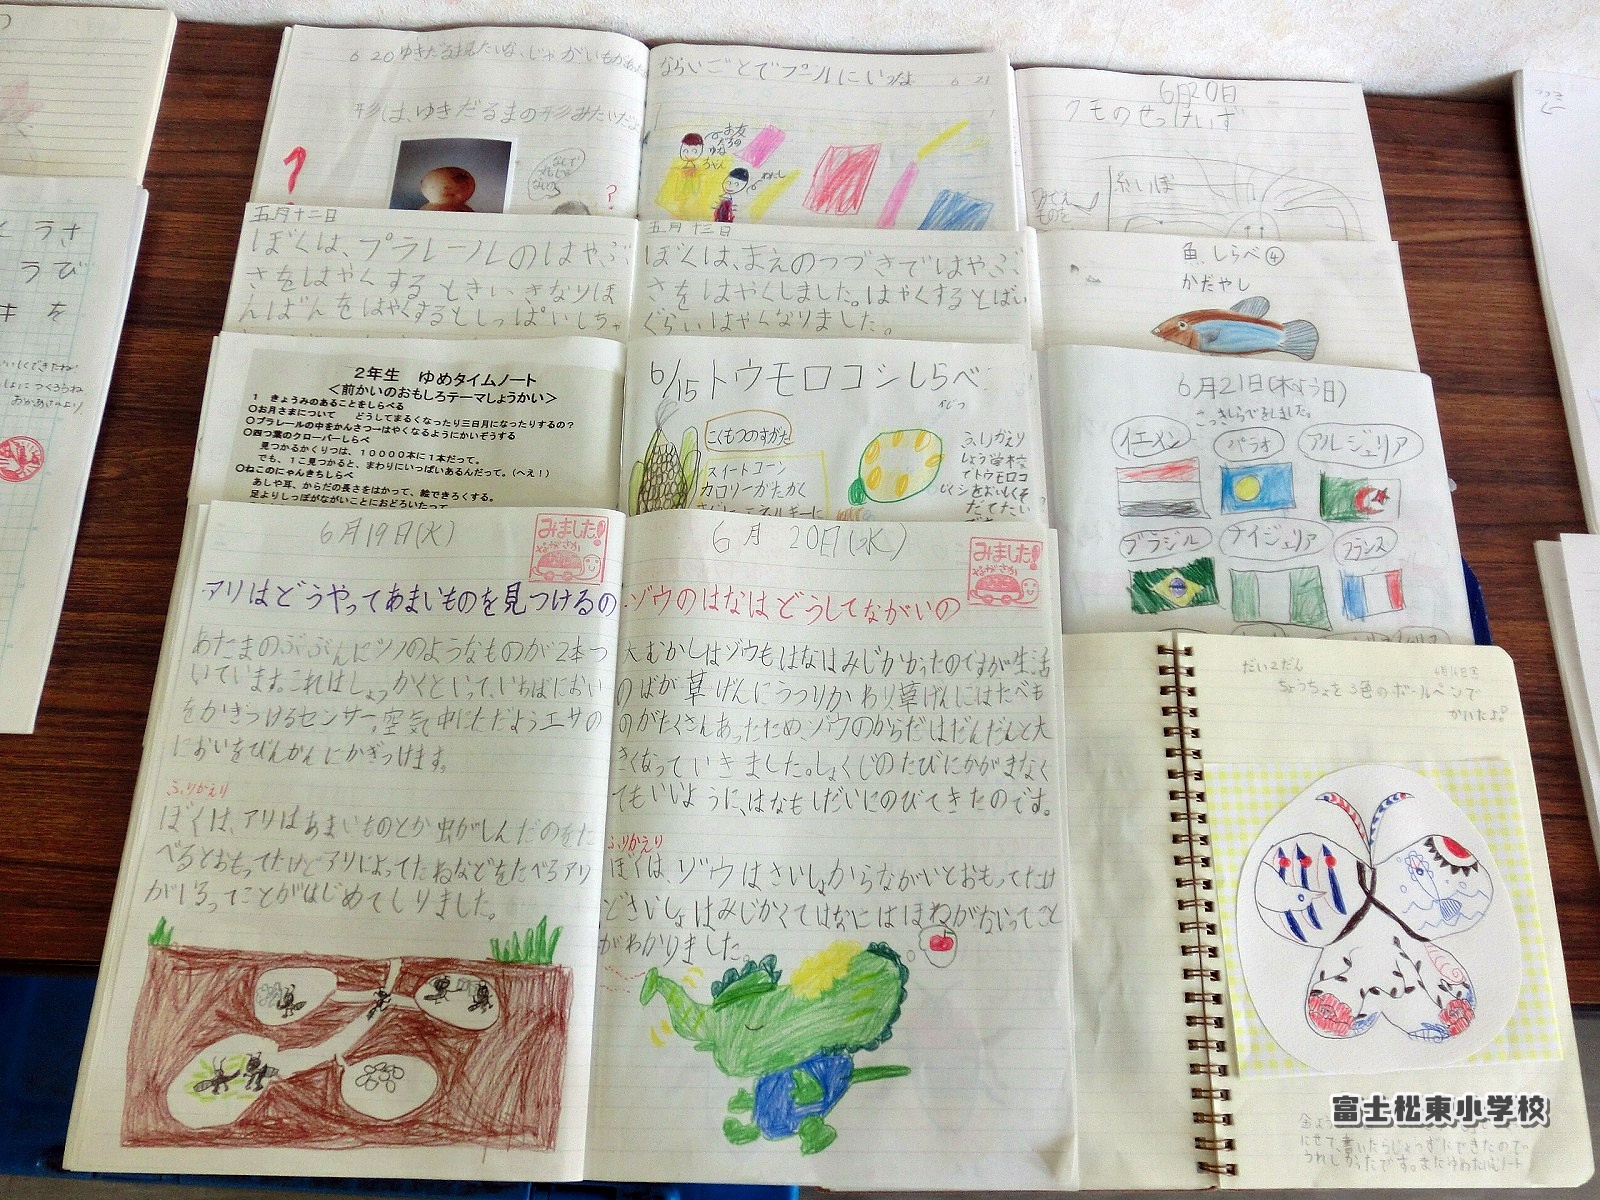 6 20 ゆきだるま見たいな、じゃがいもがあった
形は、ゆきだるまの形みたいだよ
?
なんで
?
ならいごとでプールにいったよ
6 21
お友
だちの
ゆな
ちゃん
わたし
6月20日
クモのせっけいず
糸いぼ
五月十二日
ぼくは、プラレールのはやぶ
さをはやくするときいきなりほ
んばんをはやくするとしっぱいしちゃ
五月十三日
ぼくは、まえのつづきではやぶ
さをはやくしました。はやくするとばい
ぐらいはやくなりました。
魚しらべ④
かだやし
2年生 ゆめタイムノート
<前かいのおもしろテーマしょうかい>
1 きょうみのあることをしらべる
○お月さまについて どうしてまるくなったり三日月になったりするの?
○プラレールの中をかんさつ→はやくなるようにかいぞうする
○四つ葉のクローバーしらべ
見つかるかくりつは、10000本に1本だって。
でも、1こ見つかると、まわりにいっぱいあるんだって。(へえ!)
○ねこのにゃんきちしらべ
あしや耳、からだの長さをはかって、絵できろくする。
足よりしっぽがながいことにおどろいたって。
6/15 トウモロコシしらべ
こくもつのすがた
スイートコーン
カロリーがたかく
ふりかえり
しょう学校
でトウモロコ
シをおいしくそ
だてたい
です
6月21日(木よう日)
こっきしらべをしました。
イエメン
パラオ
アルジェリア
ブラジル
ナイジェリア
フランス
6月19日(火)
みました!
ながさか
アリはどうやってあまいものを見つけるの
あたまのぶぶんにツノのようなものが2本つ
いています。これはしょっかくといって、いちばにおい
をかぎつけるセンサー。空気中にただようエサの
においをびんかんにかぎつけます。
ふりかえり
ぼくは、アリはあまいものとか虫がしんだのをた
べるとおもってたけどアリによってたねなどをたべるアリ
がいるってことがはじめてしりました。
6月20日(水)
みました!
ながさか
ゾウのはなはどうしてながいの
大むかしはゾウもはなはみじかかったのですが生活
のばが草げんにうつりかわり草げんにはたべも
のがたくさんあったため、ゾウのからだはだんだんと大
きくなっていきました。しょくじのたびにかがまなく
てもいいように、はなもしだいにのびてきたのです。
ふりかえり
ぼくは、ゾウはさいしょからながいとおもってたけ
どさいしょはみじかくてはなにはほねがないってこと
がわかりました。
だい2だん
ちょうちょを3色のボールペンで
かいたよ。
にせて、書いたらじょうずにできたので、
うれしかったです。またゆめたいむノート
富士松東小学校